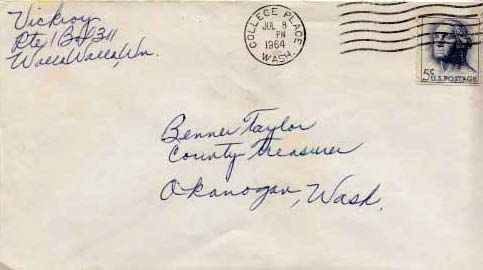 Vickroy
Rte 1 Box 311
Walla Walla, Wn.
COLLEGE PLACE
JUL 8
PM
1964
WASH.
5¢ U.S. POSTAGE
Benner Taylor
County Treasurer
Okanogan, Wash.